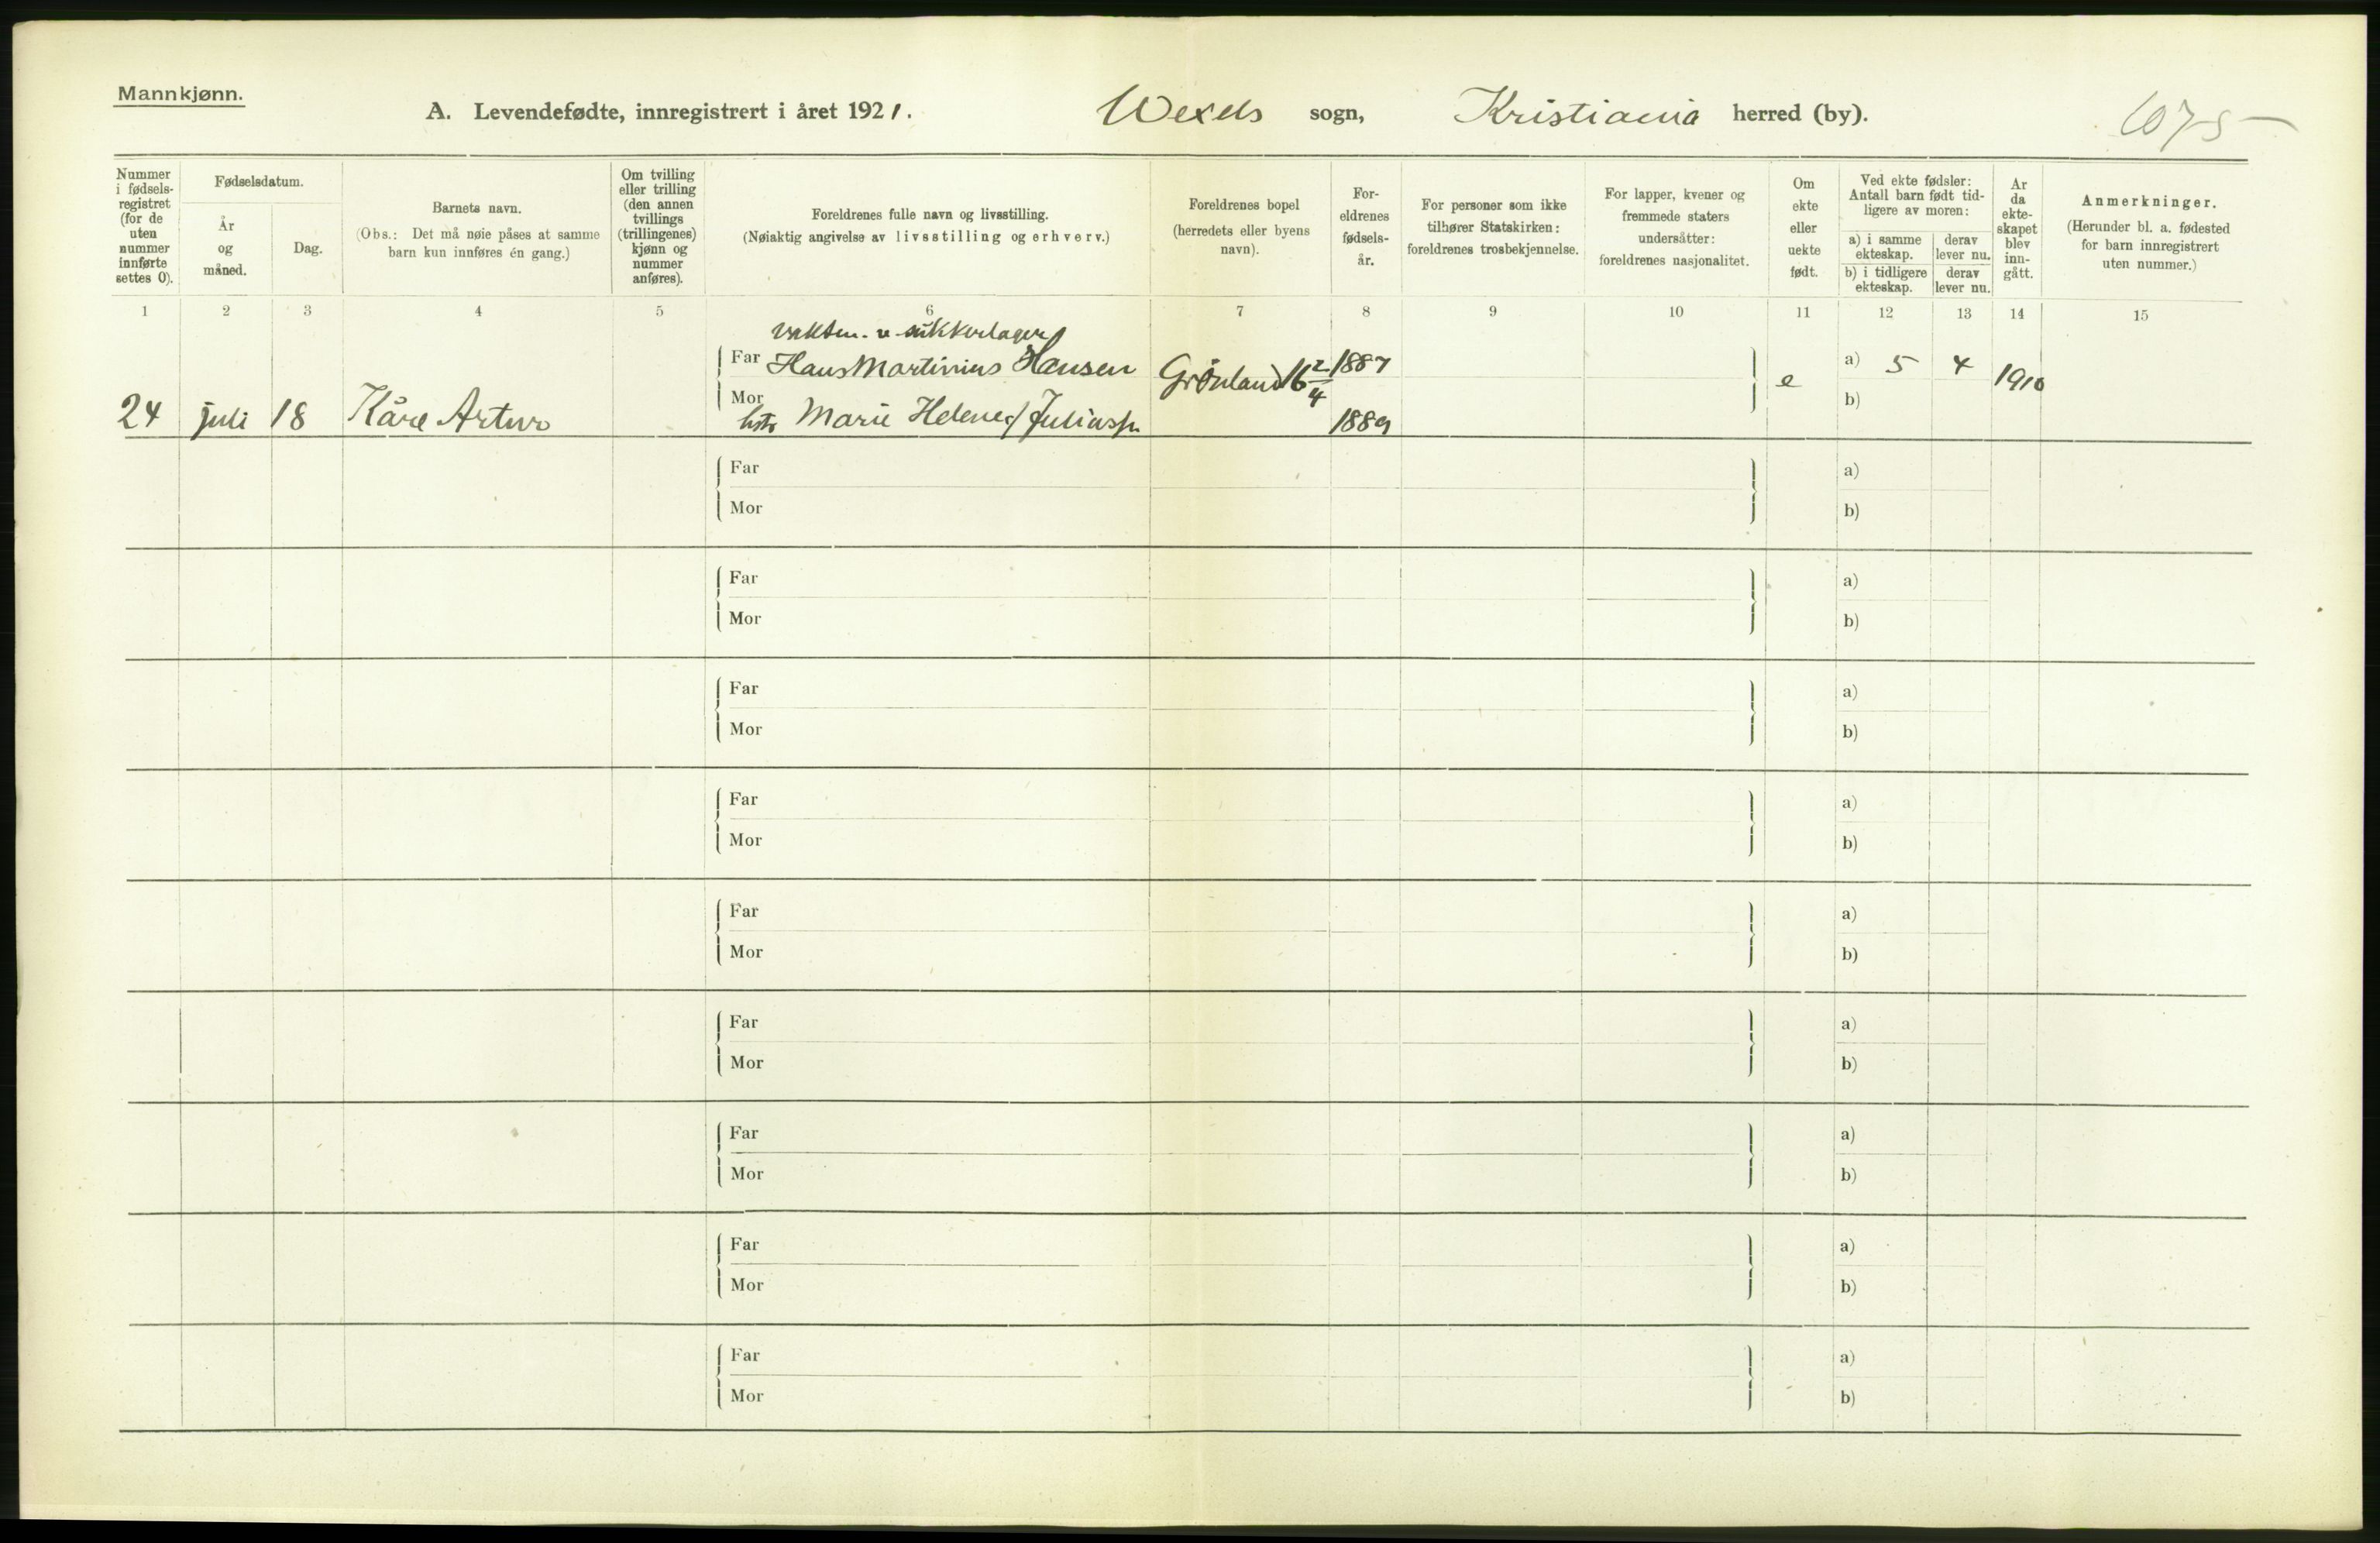 Mannkjønn.
A. Levendefødte, innregistrert i året 1921.
Wexels sogn, Kristiania herred (by).
1075
Nummer i fødsels-registret (for de uten nummer innførte settes 0).
Fødselsdatum.
År og måned.
Dag.
Barnets navn.
(Obs.: Det må nøie påses at samme barn kun innføres én gang.)
Om tvilling eller trilling (den annen tvillings (trillingenes) kjønn og nummer anføres).
Foreldrenes fulle navn og livsstilling.
(Nøiaktig angivelse av livsstilling og erhverv.)
Foreldrenes bopel (herredets eller byens navn).
For-eldrenes fødsels-år.
For personer som ikke tilhører Statskirken: foreldrenes trosbekjennelse.
For lapper, kvener og fremmede staters undersåtter: foreldrenes nasjonalitet.
Om ekte eller uekte født.
Ved ekte fødsler: Antall barn født tid-ligere av moren:
a) i samme ekteskap.
derav lever nu.
b) i tidligere ekteskap.
derav lever nu.
År da ekte-skapet blev inn-gått.
Anmerkninger.
(Herunder bl. a. fødested for barn innregistrert uten nummer.)
1 2 3 4 5 6 7 8 9 10 11 12 13 14 15
vaktm. v. sukkerlager
Far Hans Martinius Hansen Grönland 16 2/4 1887 e a) 5 4 1910
24 juli 18 Kåre Artur Mor hstr Marie Helene f Juliussen 1889 b)
Far a)
Mor b)
Far a)
Mor b)
Far a)
Mor b)
Far a)
Mor b)
Far a)
Mor b)
Far a)
Mor b)
Far a)
Mor b)
Far a)
Mor b)
Far a)
Mor b)